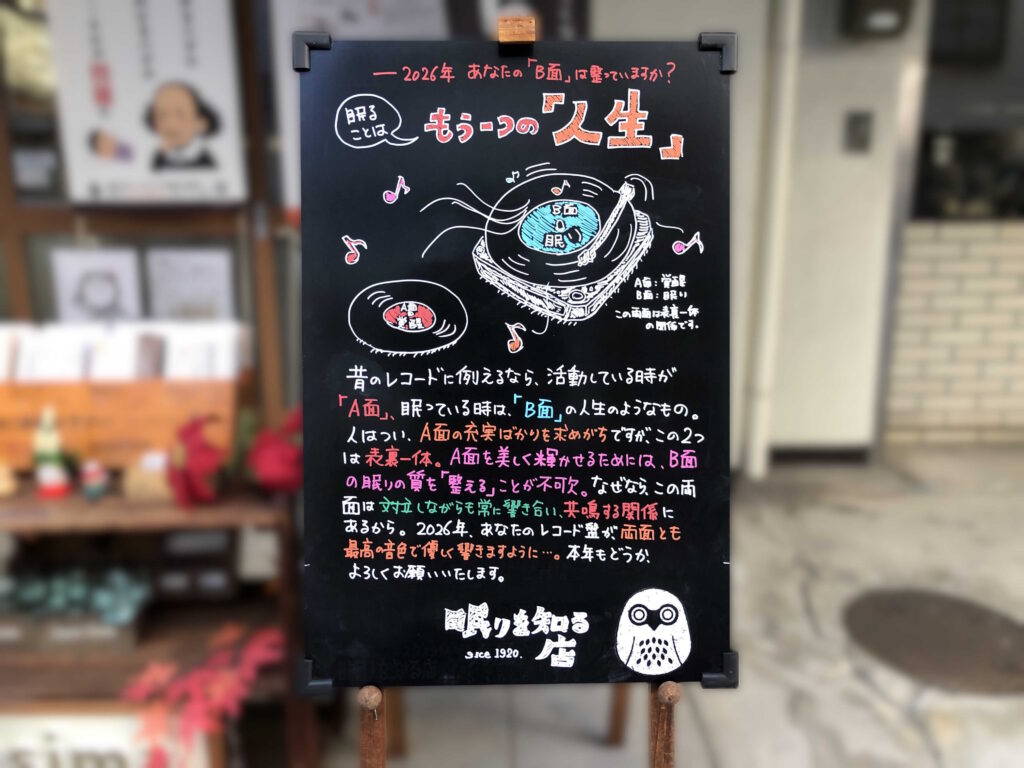 ―2026年 あなたの「B面」は整っていますか？
眠る
ことは
もう一つの「人生」
B面
眠り
A面
覚醒
A面：覚醒
B面：眠り
この両面は表裏一体
の関係です。
昔のレコードに例えるなら、活動している時が
「A面」、眠っている時は、「B面」の人生のようなもの。
人はつい、A面の充実ばかりを求めがちですが、この2つ
は表裏一体。A面を美しく輝かせるためには、B面
の眠りの質を「整える」ことが不可欠。なぜなら、この両
面は対立しながらも常に響き合い、共鳴する関係に
あるから。2026年、あなたのレコード盤が、両面とも
最高の音色で優しく響きますように…。本年もどうか、
よろしくお願いいたします。
眠りを知る
店
since 1920.
sim